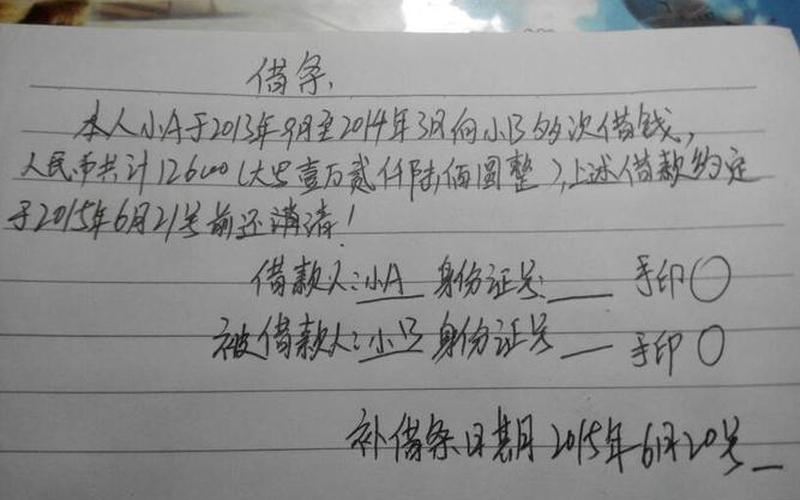 借条、
本人小A于2013年9月至2014年3月向小B多次借钱,
人民币共计12600(大写壹万贰仟陆佰圆整),上述借款约定
于2015年6月21号前还清!
借款人:小A 身份证号:___ 手印○
被借款人:小B 身份证号 ___ 手印○
补借条日期 2015年6月20号_